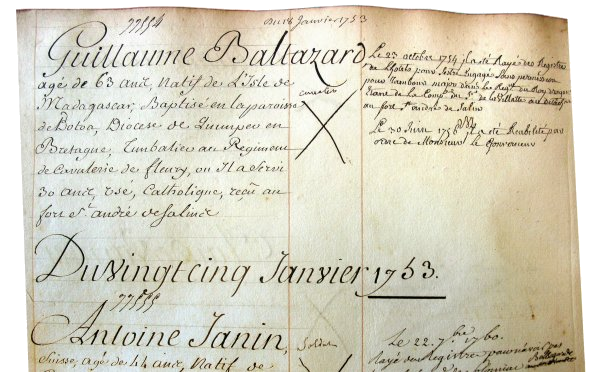 77554
Du 18 Janvier 1753
Guillaume Baltazard
agé de 63 ans, Natif de L'Isle de
Madagascar, Baptisé en la paroisse
de Botoa, Diocese de Quimper en
Bretagne, timbalier au Regiment
de Cavalerie de fleury, ou Il a Servi
30 ans, usé, Catholique, reçu au
fort St. andré de Salins
Cavalier
Le 23 octobre 1754 il a été Rayé des Registres
de L'hotel pour s'estre Engagé Sans permission
pour
major dans les Regts. du Roy d'
au fort St. andré de Salin
Le 30 Juin 1756 il a été Rehabilité par
ordre de Monsieur le Gouverneur
Du Vingt cinq Janvier 1753.
77555
Antoine Janin,
Suisse, agé de 44 ans, Natif de
Soldat
Le 22. 7bre 1760.
Rayé du Registre pour n'avoir pas